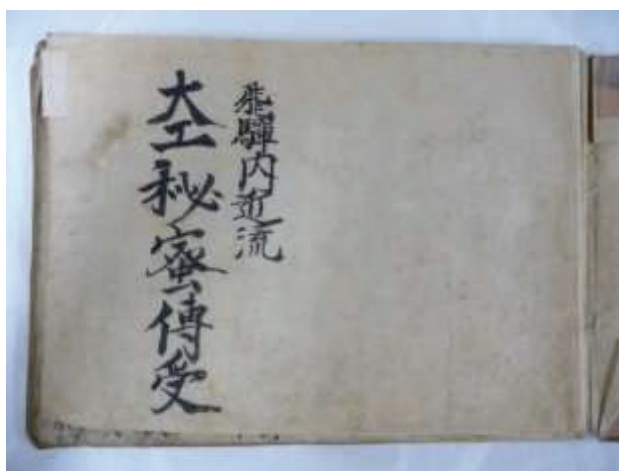 飛驒内匠流
大工秘蜜傳受